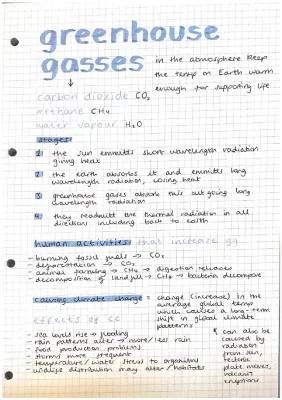 greenhouse
gasses
in the atmosphere keep
the temp on Earth warm
enough for supporting life
↓
carbon dioxide CO₂
methane CH₄
water vapour H₂O
stages:
1 the sun emmitts short wavelength radiation
giving heat
2 the earth absorbs it and emmitts long
wavelength radiation, losing heat
3 greenhouse gases absorb this out going long
wavelength radiation
4 they reademitt the thermal radiation in all
directions including back to earth
human activities that increase gg
- burning fossil fuels → CO₂
- deforestation → CO₂
- animal farming → CH₄ → digestion releases
- decomposition of landfill → CH₄ → bacteria decompose
causing climate change = change (increase) in the
average global temp
which causes a long-term
shift in global climate
patterns
effects of cc
- sea levels rise → flooding
- rain patterns alter → more/less rain
- food production problems
- storms more frequent
- temperature/water stress to organisms
- wildlife distribution may alter/habitats
can also be
caused by
radiation
from sun,
tectonic
plate moves,
volcanic
eruptions